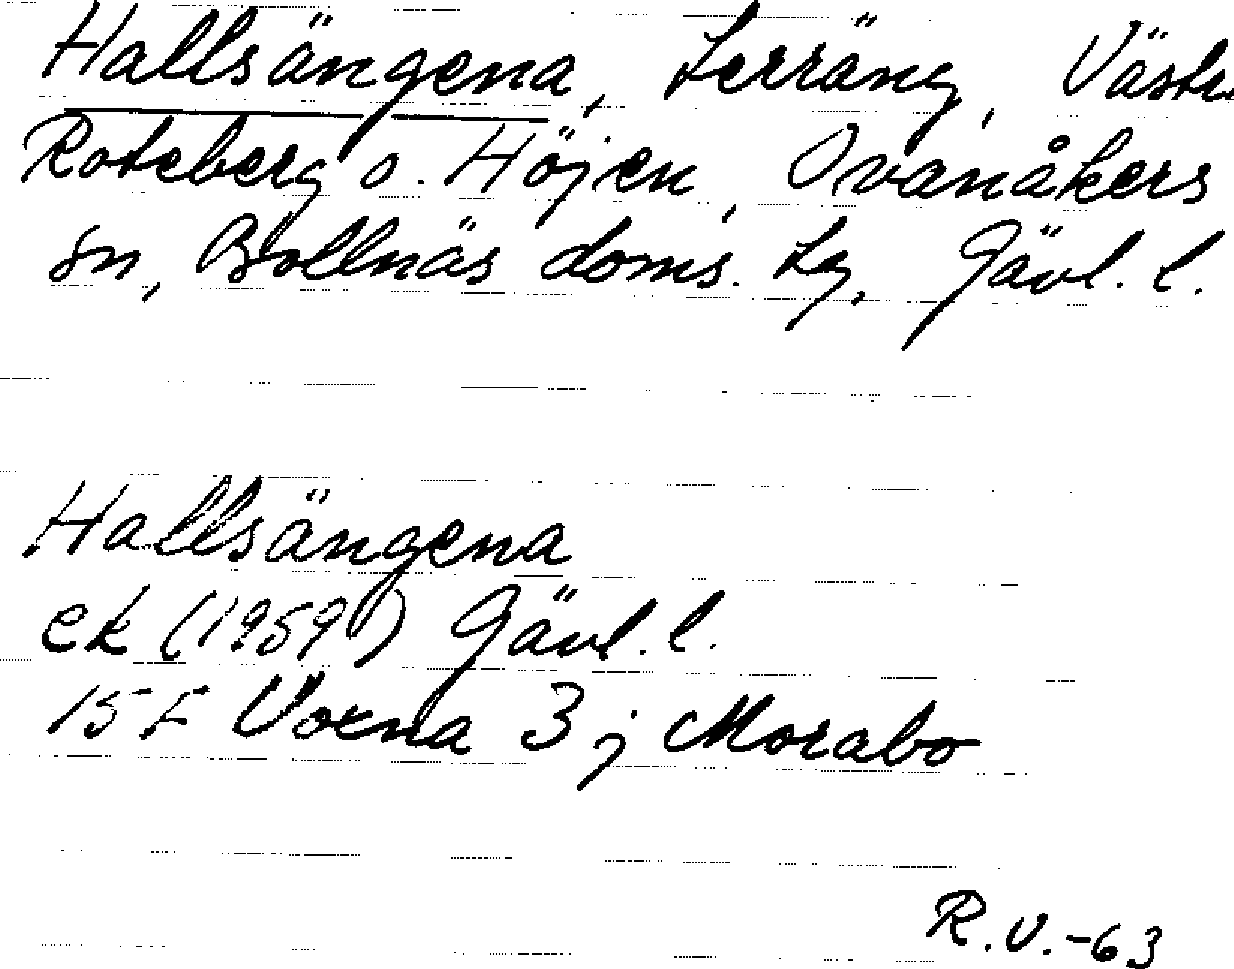 Hallsängena, Terräng, Västra
Roteberg o. Höjen, Ovanåkers
sn, Bollnäs doms. tg, Gävl. l.
Hallsängena
ek (1959) Gävl. l.
15 F Voxna 3 j Morabo
R.V.-63